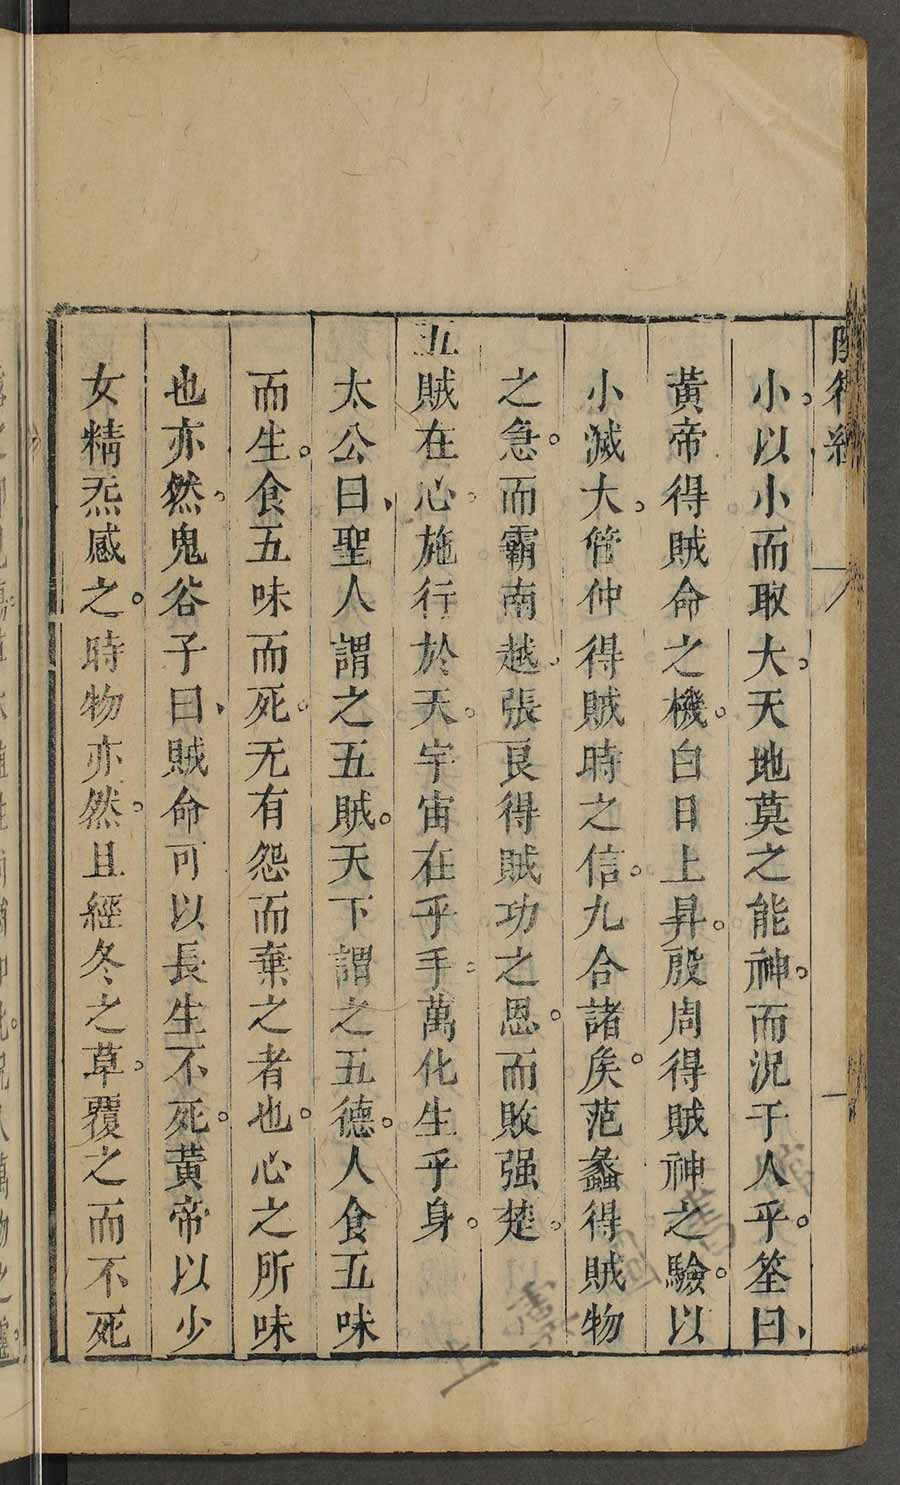 陰符經 一
小以小而取大。天地莫之能神。而況于人乎。筌曰、
黃帝得賊命之機。白日上昇。殷周得賊神之驗。以
小滅大。管仲得賊時之信。九合諸矦。范蠡得賊物
之急。而霸南越。張良得賊功之恩。而敗强楚。
五賊在心。施行於天。宇宙在乎手。萬化生乎身。
太公曰、聖人謂之五賊。天下謂之五德。人食五味
而生。食五味而死。无有怨而棄之者也。心之所味
也亦然。鬼谷子曰、賊命可以長生不死。黃帝以少
女精炁感之。時物亦然。且經冬之草。覆之而不死